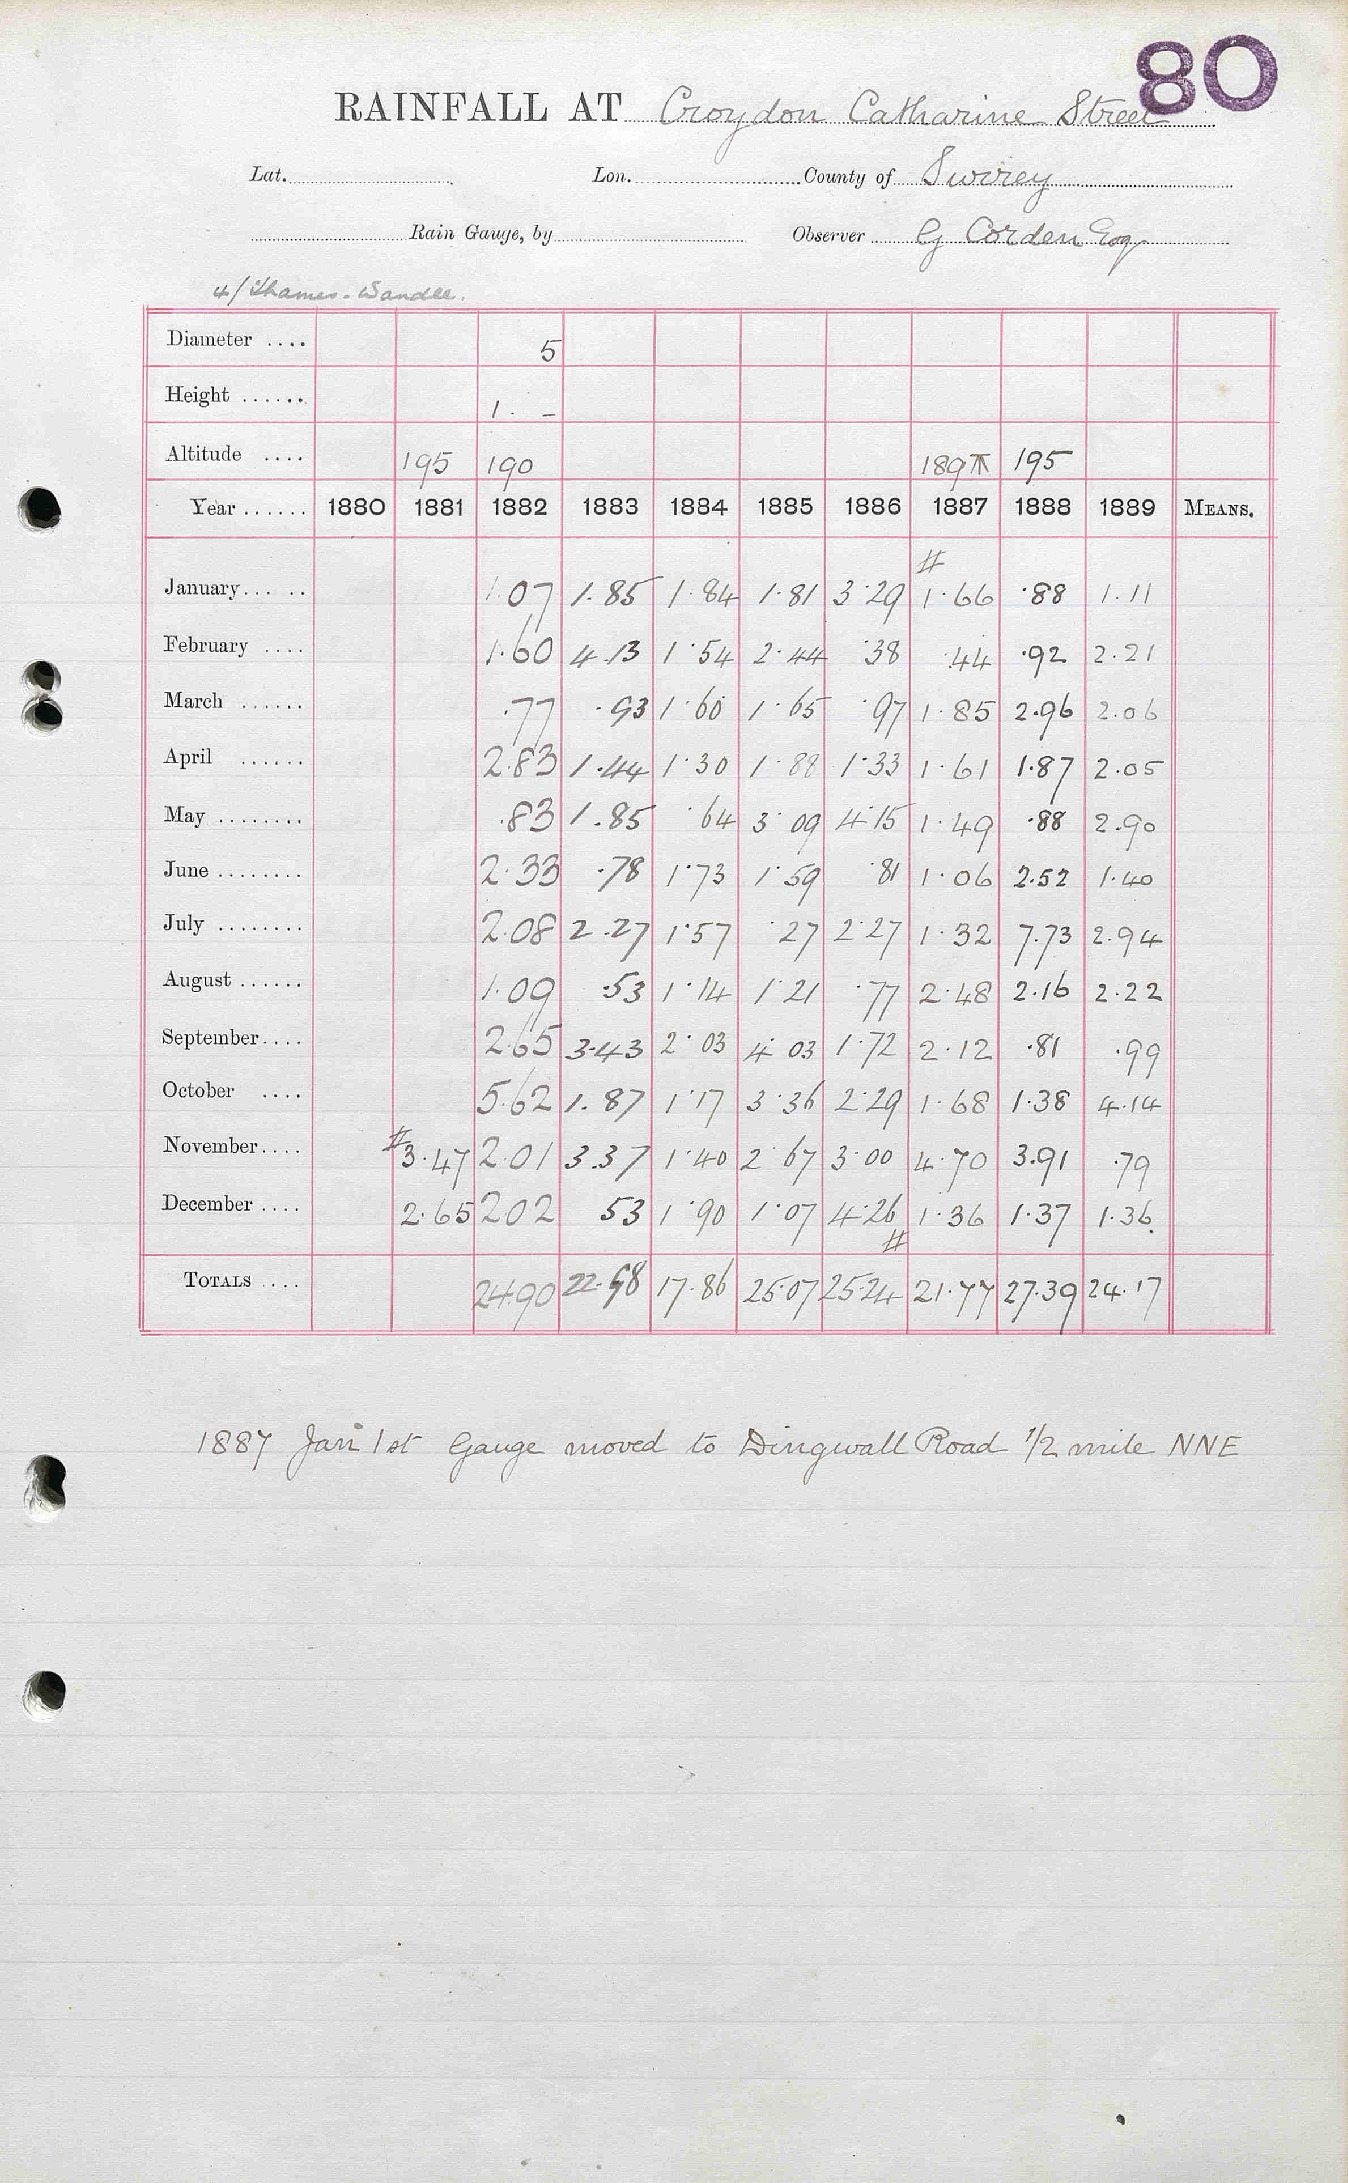 80
RAINFALL AT Croydon Catharine Street
Lat. Lon. County of Surrey
Rain Gauge, by Observer G Corden Esq
4/ Thames - Wandle.
Diameter .... 5
Height ...... 1. -
Altitude .... 195 190 189 T 195
Year ...... 1880 1881 1882 1883 1884 1885 1886 1887 1888 1889 MEANS.
#
January... .. 1.07 1.85 1.84 1.81 3.29 1.66 .88 1.11
February .... 1.60 4.13 1.54 2.44 .38 .44 .92 2.21
March ...... .77 .93 1.60 1.65 .97 1.85 2.96 2.06
April ...... 2.83 1.44 1.30 1.88 1.33 1.61 1.87 2.05
May ........ .83 1.85 .64 3.09 4.15 1.49 .88 2.90
June ........ 2.33 .78 1.73 1.59 .81 1.06 2.52 1.40
July ........ 2.08 2.27 1.57 .27 2.27 1.32 7.73 2.94
August ...... 1.09 .53 1.14 1.21 .77 2.48 2.16 2.22
September.... 2.65 3.43 2.03 4.03 1.72 2.12 .81 .99
October .... 5.62 1.87 1.17 3.36 2.29 1.68 1.38 4.14
November.... #3.47 2.01 3.37 1.40 2.67 3.00 4.70 3.91 .79
December .... 2.65 2.02 53 1.90 1.07 4.26 1.36 1.37 1.36.
#
TOTALS .... 24.90 22.98 17.86 25.07 25.24 21.77 27.39 24.17
1887 Jan 1st Gauge moved to Dingwall Road 1/2 mile NNE